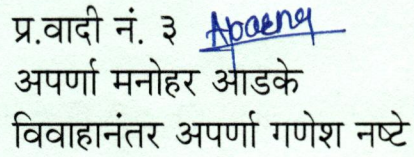 प्र.वादी नं. ३
अपर्णा मनोहर आडके
विवाहानंतर अपर्णा गणेश नष्टे